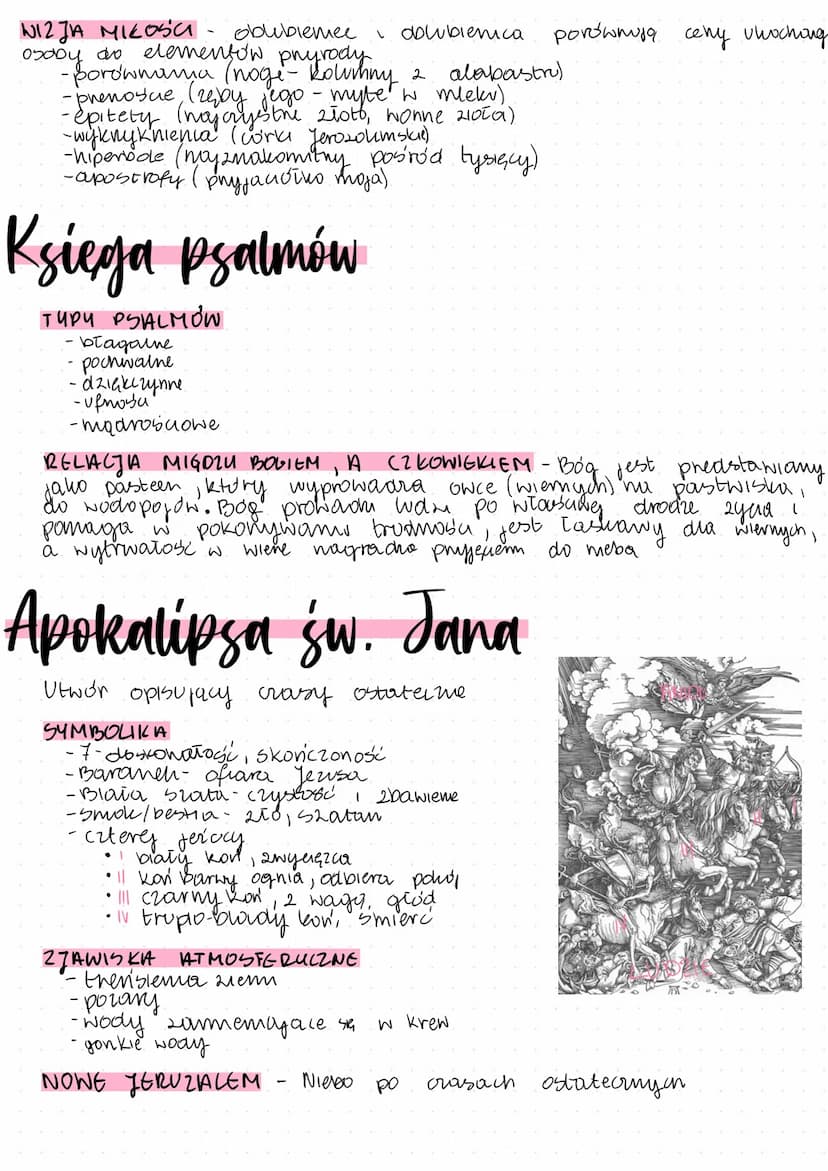 WIZJA MIŁOŚCI - oblubieniec i oblubienica porównują cechy ukochanej
osoby do elementów przyrody
- porównania (nogi - kolumny z alabastru)
- przenoście (zęby jego - myte w mleku)
- epitety (najczystsze złoto, wonne zioła)
- wykrzyknienia (córki Jerozolimskie)
- hiperbole (najznakomitszy pośród tysięcy)
- apostrofy (przyjaciółko moja)
Księga psalmów
TYPY PSALMÓW
- błagalne
- pochwalne
- dziękczynne
- ufności
- mądrościowe
RELACJA MIĘDZY BOGIEM, A CZŁOWIEKIEM - Bóg jest przedstawiany
jako pasterz, który wyprowadza owce (wiernych) na pastwiska,
do wodopojów. Bóg prowadzi ludzi po właściwej drodze życia i
pomaga w pokonywaniu trudności, jest łaskawy dla wiernych,
a wytrwałość w wierze nagradza przyjęciem do nieba
Apokalipsa św. Jana
Utwór opisujący czasy ostateczne
SYMBOLIKA
- 7 - doskonałość, skończoność
- Baranek - ofiara Jezusa
- Biała szata - czystość i zbawienie
- smok/bestia - zło, szatan
- czterej jeźdźcy
• I biały koń, zwycięzca
• II koń barwy ognia, odbiera pokój
• III czarny koń, z wagą, głód
• IV trupio-blady koń, śmierć
I
II
III
IV
LUDZIE
ZJAWISKA ATMOSFERYCZNE
- trzęsienia ziemi
- pożary
- wody zamieniające się w krew
- gorzkie wody
NOWE JERUZALEM - Niebo po czasach ostatecznych